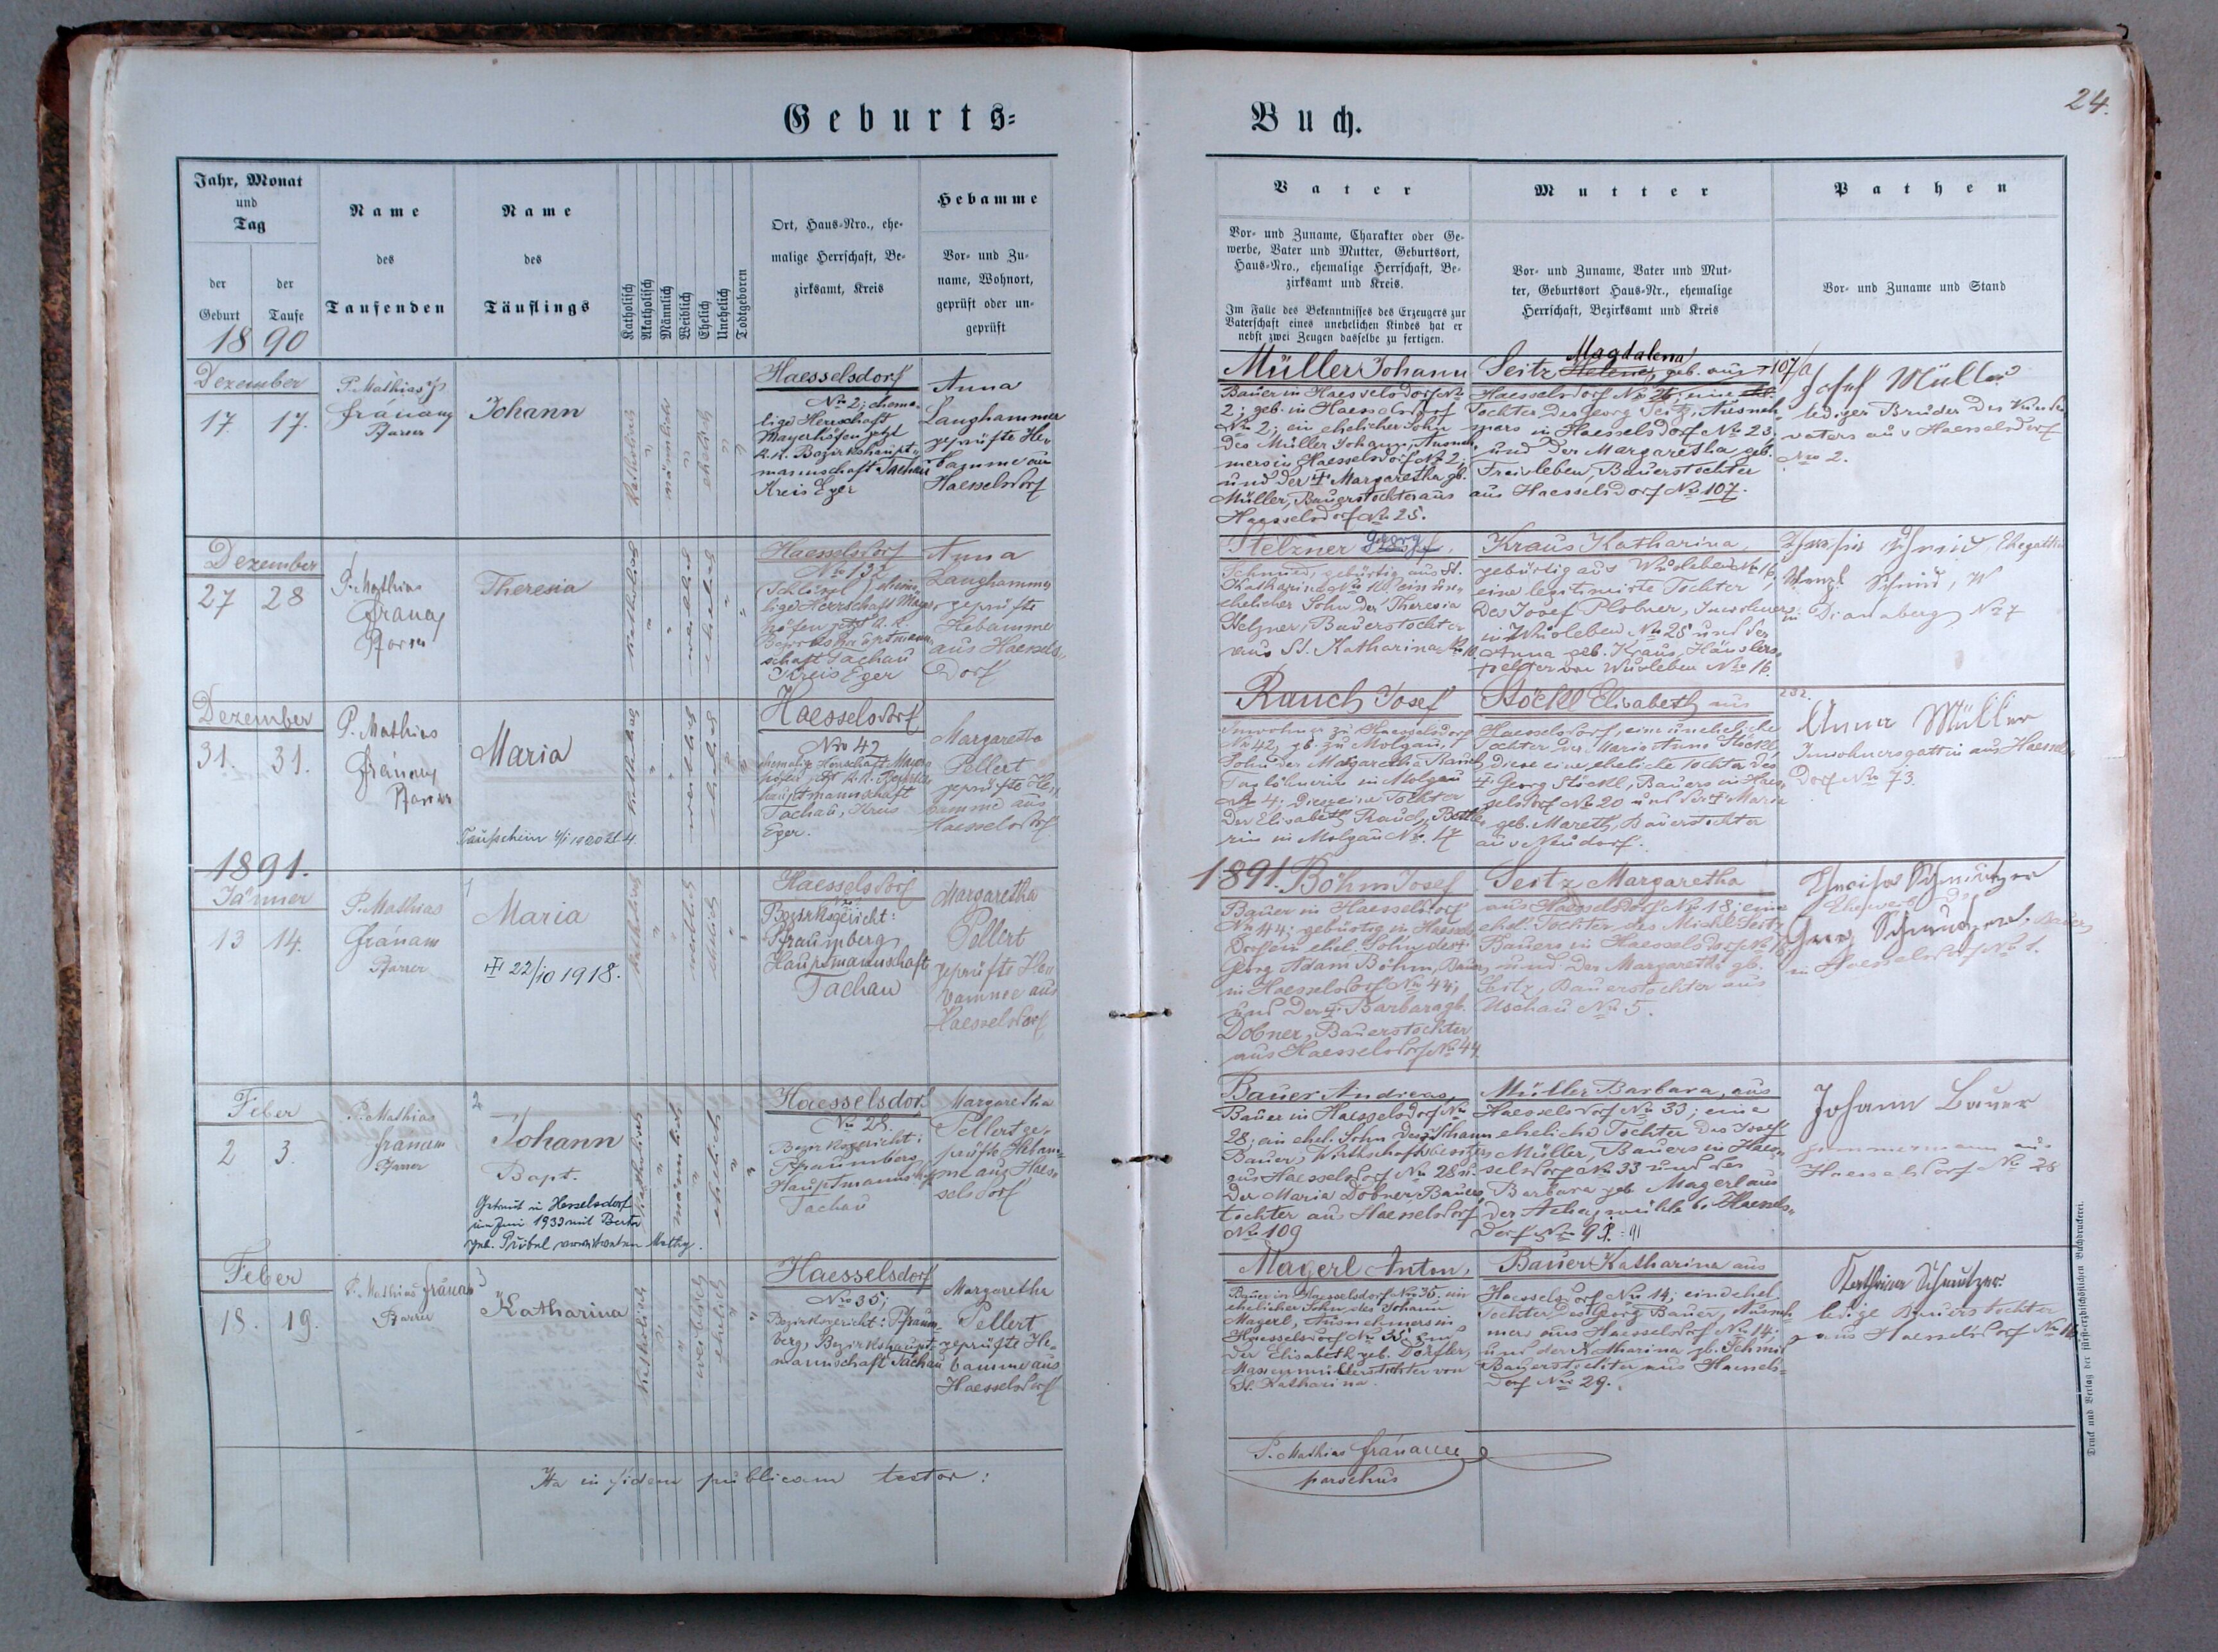 Geburts=
Buch.
24.
Jahr, Monat
und
Tag
der
Geburt
der
Taufe
1890
Name
des
Taufenden
Name
des
Täuflings
Katholisch
Akatholisch
Männlich
Weiblich
Ehelich
Unehelich
Todtgeboren
Ort, Haus=Nro., ehe=
malige Herrschaft, Be=
zirksamt, Kreis
Hebamme
Vor= und Zu=
name, Wohnort,
geprüft oder un=
geprüft
Vater
Vor= und Zuname, Charakter oder Ge=
werbe, Vater und Mutter, Geburtsort,
Haus=Nro., ehemalige Herrschaft, Be=
zirksamt und Kreis.
Im Falle des Bekenntnisses des Erzeugers zur
Vaterschaft eines unehelichen Kindes hat er
nebst zwei Zeugen dasselbe zu fertigen.
Mutter
Vor= und Zuname, Vater und Mut=
ter, Geburtsort Haus=Nr., ehemalige
Herrschaft, Bezirksamt und Kreis
Pathen
Vor= und Zuname und Stand
Dezember
17 17.
P. Mathias
Pfarrer
Johann
katholisch
männlich
ehelich
Haesselsdorf
No 2; ehema=
lige Herrschaft
Mayerhöfen jetzt
k. k. Bezirkshaupt=
mannschaft Tachau
Kreis Eger
Anna
Langhammer
geprüfte He=
bamme aus
Haesselsdorf
Müller Johann
Bauer in Haesselsdorf No
2; geb. in Haesselsdorf
No 2; ein ehelicher Sohn
des Müller Johann, Ausneh=
mers in Haesselsdorf No 2;
und der † Margaretha gb.
Müller, Bauerstochter aus
Haesselsdorf No 25.
Magdalena
Seitz Helena, geb. aus
Haesselsdorf No
Tochter des Georg Seitz, Ausneh=
mers in Haesselsdorf No 23;
und der Margaretha geb.
Freisleben, Bauerstochter
aus Haesselsdorf No 107.
107/a
Josef Müller
lediger Bruder des Kindes=
vaters aus Haesselsdorf
No 2.
Dezember
27 28
P. Mathias
Pfarrer
Theresia
katholisch
weiblich
ehelich
Haesselsdorf
No 132
ehema=
lige Herrschaft Mayer=
höfen jetzt k. k.
Bezirkshauptmann=
schaft Tachau
Kreis Eger
Anna
Langhammer
geprüfte
Hebamme
aus Haessels=
dorf
Stelzner Georg
Schmied, gebürtig aus St.
Katharina No 10, ein une=
ehelicher Sohn der Theresia
Stelzner, Bauerstochter
aus St. Katharina No 10
Kraus Katharina,
gebürtig aus Wusleben No 16,
eine legitimirte Tochter
des Josef Plobner, Inwohners
in Wusleben No 28 und der
Anna geb. Kraus, Häuslers=
tochter von Wusleben No 16.
Schmid, Ehegattin
Schmid,
in Dianaberg No 7
Dezember
31. 31.
P. Mathias
Pfarrer
Maria
Taufschein
katholisch
weiblich
ehelich
Haesselsdorf
No 42
ehemalige Herrschaft Mayer=
höfen jetzt k. k. Bezirks=
hauptmannschaft
Tachau, Kreis
Eger.
Margaretha
Pellert
geprüfte He=
bamme aus
Haesselsdorf
Rauch Josef
Inwohner zu Haesselsdorf
No 42, gb. zu Molgau,
Sohn der Margaretha Rauch,
Taglöhnerin in Molgau
No 4; diese eine Tochter
der Elisabeth Rauch, Bettle=
rin in Molgau No. 17
Stöckl Elisabeth aus
Haesselsdorf, eine uneheliche
Tochter der Maria Anna Stöckl,
diese eine eheliche Tochter des
† Georg Stöckl, Bauers in Haes=
selsdorf No 20 und der † Maria
geb. Mareth, Bauerstochter
aus Neudorf.
Anna Müller
Inwohnersgattin aus Haessels=
dorf No 73.
1891.
Jänner
13 14.
P. Mathias
Pfarrer
1
Maria
† 22/10 1918.
katholisch
weiblich
ehelich
Haesselsdorf
Bezirksgericht:
Pfraumberg
Hauptmannschaft
Tachau
Margaretha
Pellert
geprüfte He=
bamme aus
Haesselsdorf
1891.
Böhm Josef
Bauer in Haesselsdorf
No 44; gebürtig in Haessels=
dorf ein ehel. Sohn des †
Georg Adam Böhm, Bauer
in Haesselsdorf No 44;
und der † Barbara gb.
Dobner, Bauerstochter
aus Haesselsdorf No 44.
Seitz Margaretha
aus Haesselsdorf No 18; eine
ehel. Tochter des Michl Seitz
Bauers in Haesselsdorf No 18;
und der Margaretha gb.
Seitz, Bauerstochter aus
Uschau No 5.
Eheweib des
Bauer
in Haesselsdorf No 1.
Feber
2 3.
P. Mathias
Pfarrer
2
Johann
Bapt.
Getraut in Hesselsdorf
im Juni 1933 mit Berta
geb. Pribel verwitweten
katholisch
männlich
ehelich
Haesselsdorf
No 28.
Bezirksgericht:
Pfraumberg
Hauptmannschaft
Tachau
Margaretha
Pellert ge=
prüfte Hebam=
me aus Haes=
selsdorf
Bauer Andreas,
Bauer in Haesselsdorf No
28; ein ehel. Sohn des Johann
Bauer, Wirthschaftsbesitzers
aus Haesselsdorf No 28 u.
der Maria Dobner, Bauers=
tochter aus Haesselsdorf
No 109
Müller Barbara, aus
Haesselsdorf No 33; eine
eheliche Tochter des Josef
Müller, Bauers in Haes=
selsdorf No 33 und der
Barbara geb. Magerl aus
der bei Haessels=
dorf No 91
Johann Bauer
aus
Haesselsdorf No 28
Feber
18. 19.
P. Mathias
Pfarrer
3
Katharina
katholisch
weiblich
ehelich
Haesselsdorf
No 35;
Bezirksgericht: Pfraum=
berg, Bezirkshaupt=
mannschaft Tachau
Margaretha
Pellert
geprüfte He=
bamme aus
Haesselsdorf
Magerl Anton,
Bauer in Haesselsdorf No 35. ein
ehelicher Sohn des Johann
Magerl, Ausnehmers in
Haesselsdorf No 35 und
der Elisabeth geb. Dörfler,
Massenmüllerstochter von
St. Katharina.
Bauer Katharina aus
Haesselsdorf No 14; eine ehel.
Tochter des Georg Bauer, Ausneh=
mer aus Haesselsdorf No 14;
und der Katharina gb. Schmid
Bauerstochter aus Haessels=
dorf No 29.
Katharina Schmutzer
ledige Bauerstochter
aus Haesselsdorf No
Ita in fidem publicam testor:
P. Mathias
parochus
Druck und Verlag der fürsterzbischöflichen Buchdruckerei.